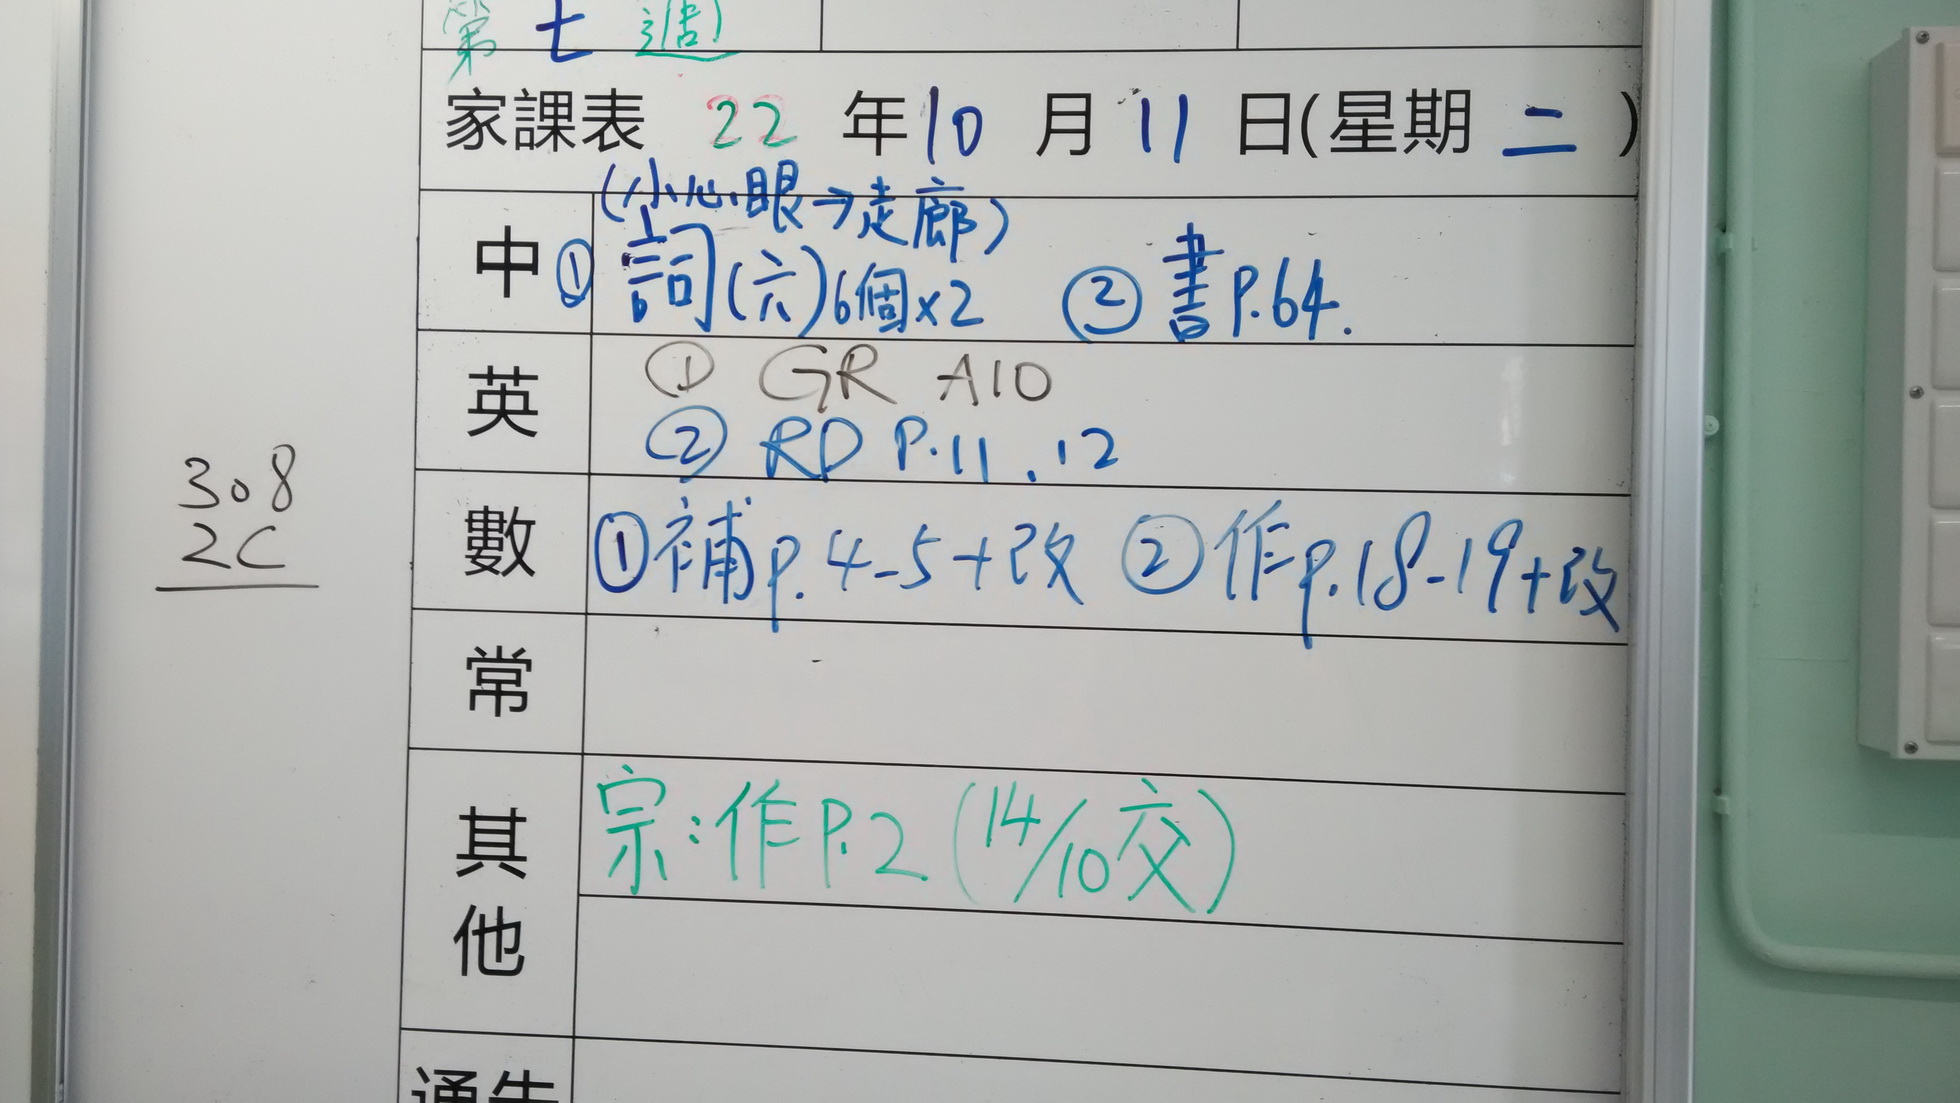 第七週
家課表 22 年 10 月 11 日(星期 二 )
(小心眼→走廊)
中 ① 詞(六)6個x2 ② 書P.64.
英 ① GR A10
② RD P.11, 12
數 ①補p.4-5+改 ②作p.18-19+改
常
其他 宗:作P.2 (14/10交)
通告
308
2C